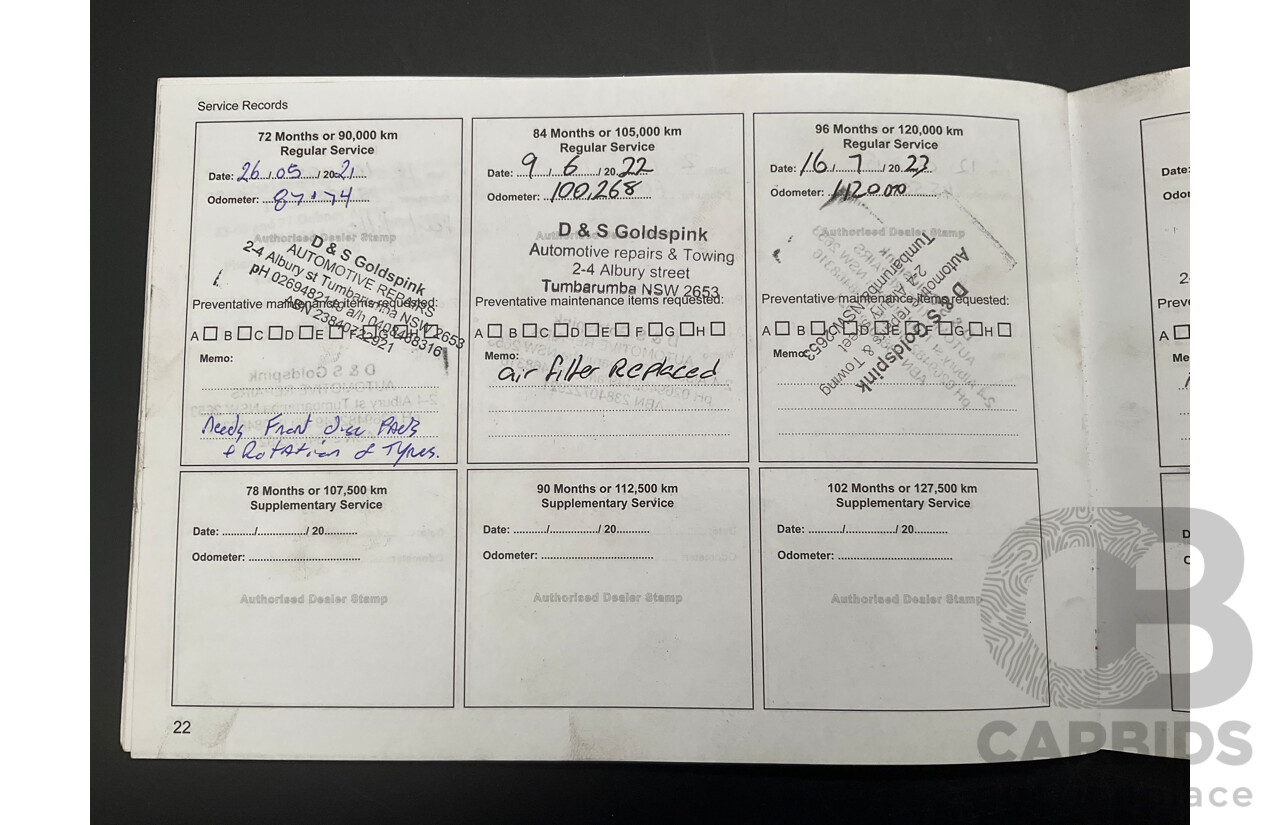 Service Records
72 Months or 90,000 km
Regular Service
Date: 26/05/2021
Odometer: 87174
Authorised Dealer Stamp
D & S Goldspink
AUTOMOTIVE REPAIRS
2-4 Albury st Tumbarumba NSW 2653
a/h 0408488316
ABN 23840722921
Preventative maintenance items requested:
A B C D E F G H
Memo:
Needs Front disc PADS
+ Rotation of Tyres.
84 Months or 105,000 km
Regular Service
Date: 9/6/2022
Odometer: 100,268
D & S Goldspink
Automotive repairs & Towing
2-4 Albury street
Tumbarumba NSW 2653
Preventative maintenance items requested:
A B C D E F G H
Memo:
air filter Replaced
96 Months or 120,000 km
Regular Service
Date: 16/7/2023
Odometer: 112000
Authorised Dealer Stamp
D & S Goldspink
Automotive repairs & Towing
2-4 Albury street
Tumbarumba NSW 2653
Preventative maintenance items requested:
A B C D E F G H
Memo:
78 Months or 107,500 km
Supplementary Service
Date: ........../................/ 20..........
Odometer: ..................................
Authorised Dealer Stamp
90 Months or 112,500 km
Supplementary Service
Date: ........../................/ 20..........
Odometer: ..................................
Authorised Dealer Stamp
102 Months or 127,500 km
Supplementary Service
Date: ........../................/ 20..........
Odometer: ..................................
Authorised Dealer Stamp
22
Date:
A
CARBIDS